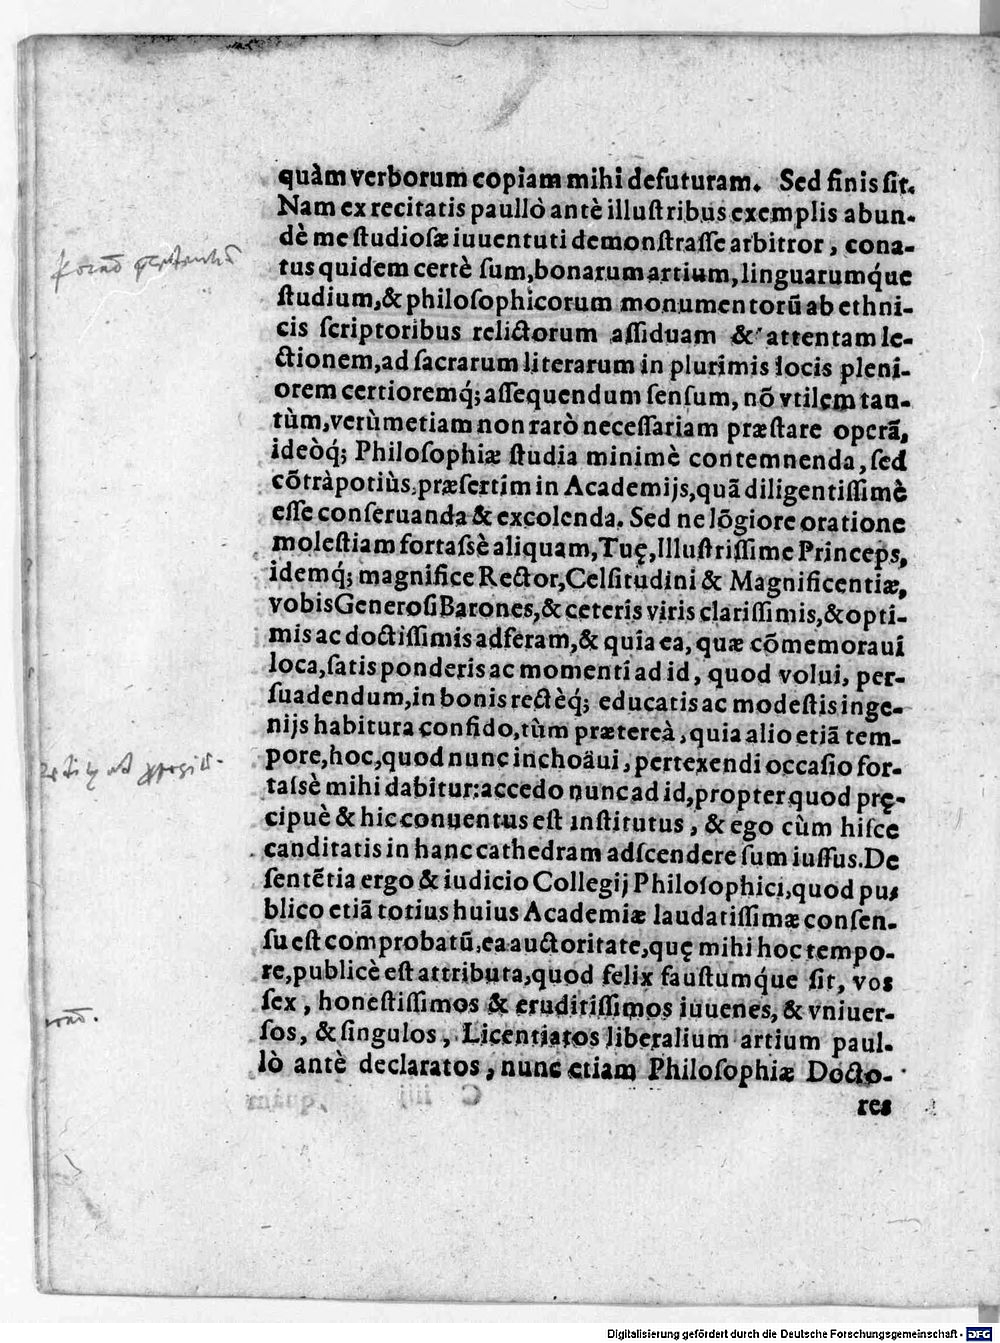 quàm verborum copiam mihi defuturam. Sed finis sit.
Nam ex recitatis paullò antè illustribus exemplis abun-
dè me studiosæ iuuentuti demonstrasse arbitror, cona-
tus quidem certè sum, bonarum artium, linguarumq́ue
studium, & philosophicorum monumentorū ab ethni-
cis scriptoribus relictorum assiduam & attentam le-
ctionem, ad sacrarum literarum in plurimis locis pleni-
orem certioremq́; assequendum sensum, nō vtilem tan-
tùm, verùm etiam non rarò necessariam præstare operā,
ideòq́; Philosophiæ studia minimè contemnenda, sed
cōtrà potiùs, præsertim in Academijs, quā diligentissimè
esse conseruanda & excolenda. Sed ne lōgiore oratione
molestiam fortassè aliquam, Tuę, Illustrissime Princeps,
idemq́; magnifice Rector, Celsitudini & Magnificentiæ,
vobis Generosi Barones, & ceteris viris clarissimis, & opti-
mis ac doctissimis adferam, & quia ea, quæ cōmemoraui
loca, satis ponderis ac momenti ad id, quod volui, per-
suadendum, in bonis rectèq́; educatis ac modestis inge-
nijs habitura confido, tùm prætereà, quia alio etiā tem-
pore, hoc, quod nunc inchoāui, pertexendi occasio for-
tassè mihi dabitur: accedo nunc ad id, propter quod prę-
cipuè & hic conuentus est institutus, & ego cùm hisce
canditatis in hanc cathedram adscendere sum iussus. De
sentētia ergo & iudicio Collegij Philosophici, quod pu-
blico etiā totius huius Academiæ laudatissimæ consen-
su est comprobatū, ea auctoritate, quę mihi hoc tempo-
re, publicè est attributa, quod felix faustumq́ue sit, vos
sex, honestissimos & eruditissimos iuuenes, & vniuer-
sos, & singulos, Licentiatos liberalium artium paul-
lò antè declaratos, nunc etiam Philosophiæ Docto-
res
Digitalisierung gefördert durch die Deutsche Forschungsgemeinschaft - DFG